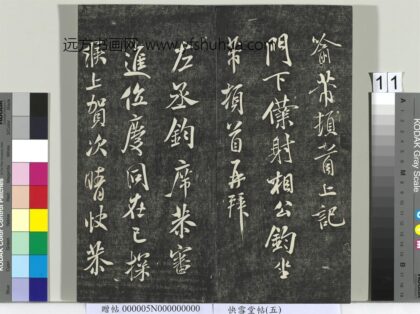 芾頓首上記
門下僕射相公鈞坐
芾頓首再拜
右丞鈞席恭審
進位慶同在已探
候上賀次晴快恭
11
KODAK Gray Scale
KODAK Color Control Patches
贈帖 000005N000000000
快雪堂帖(五)